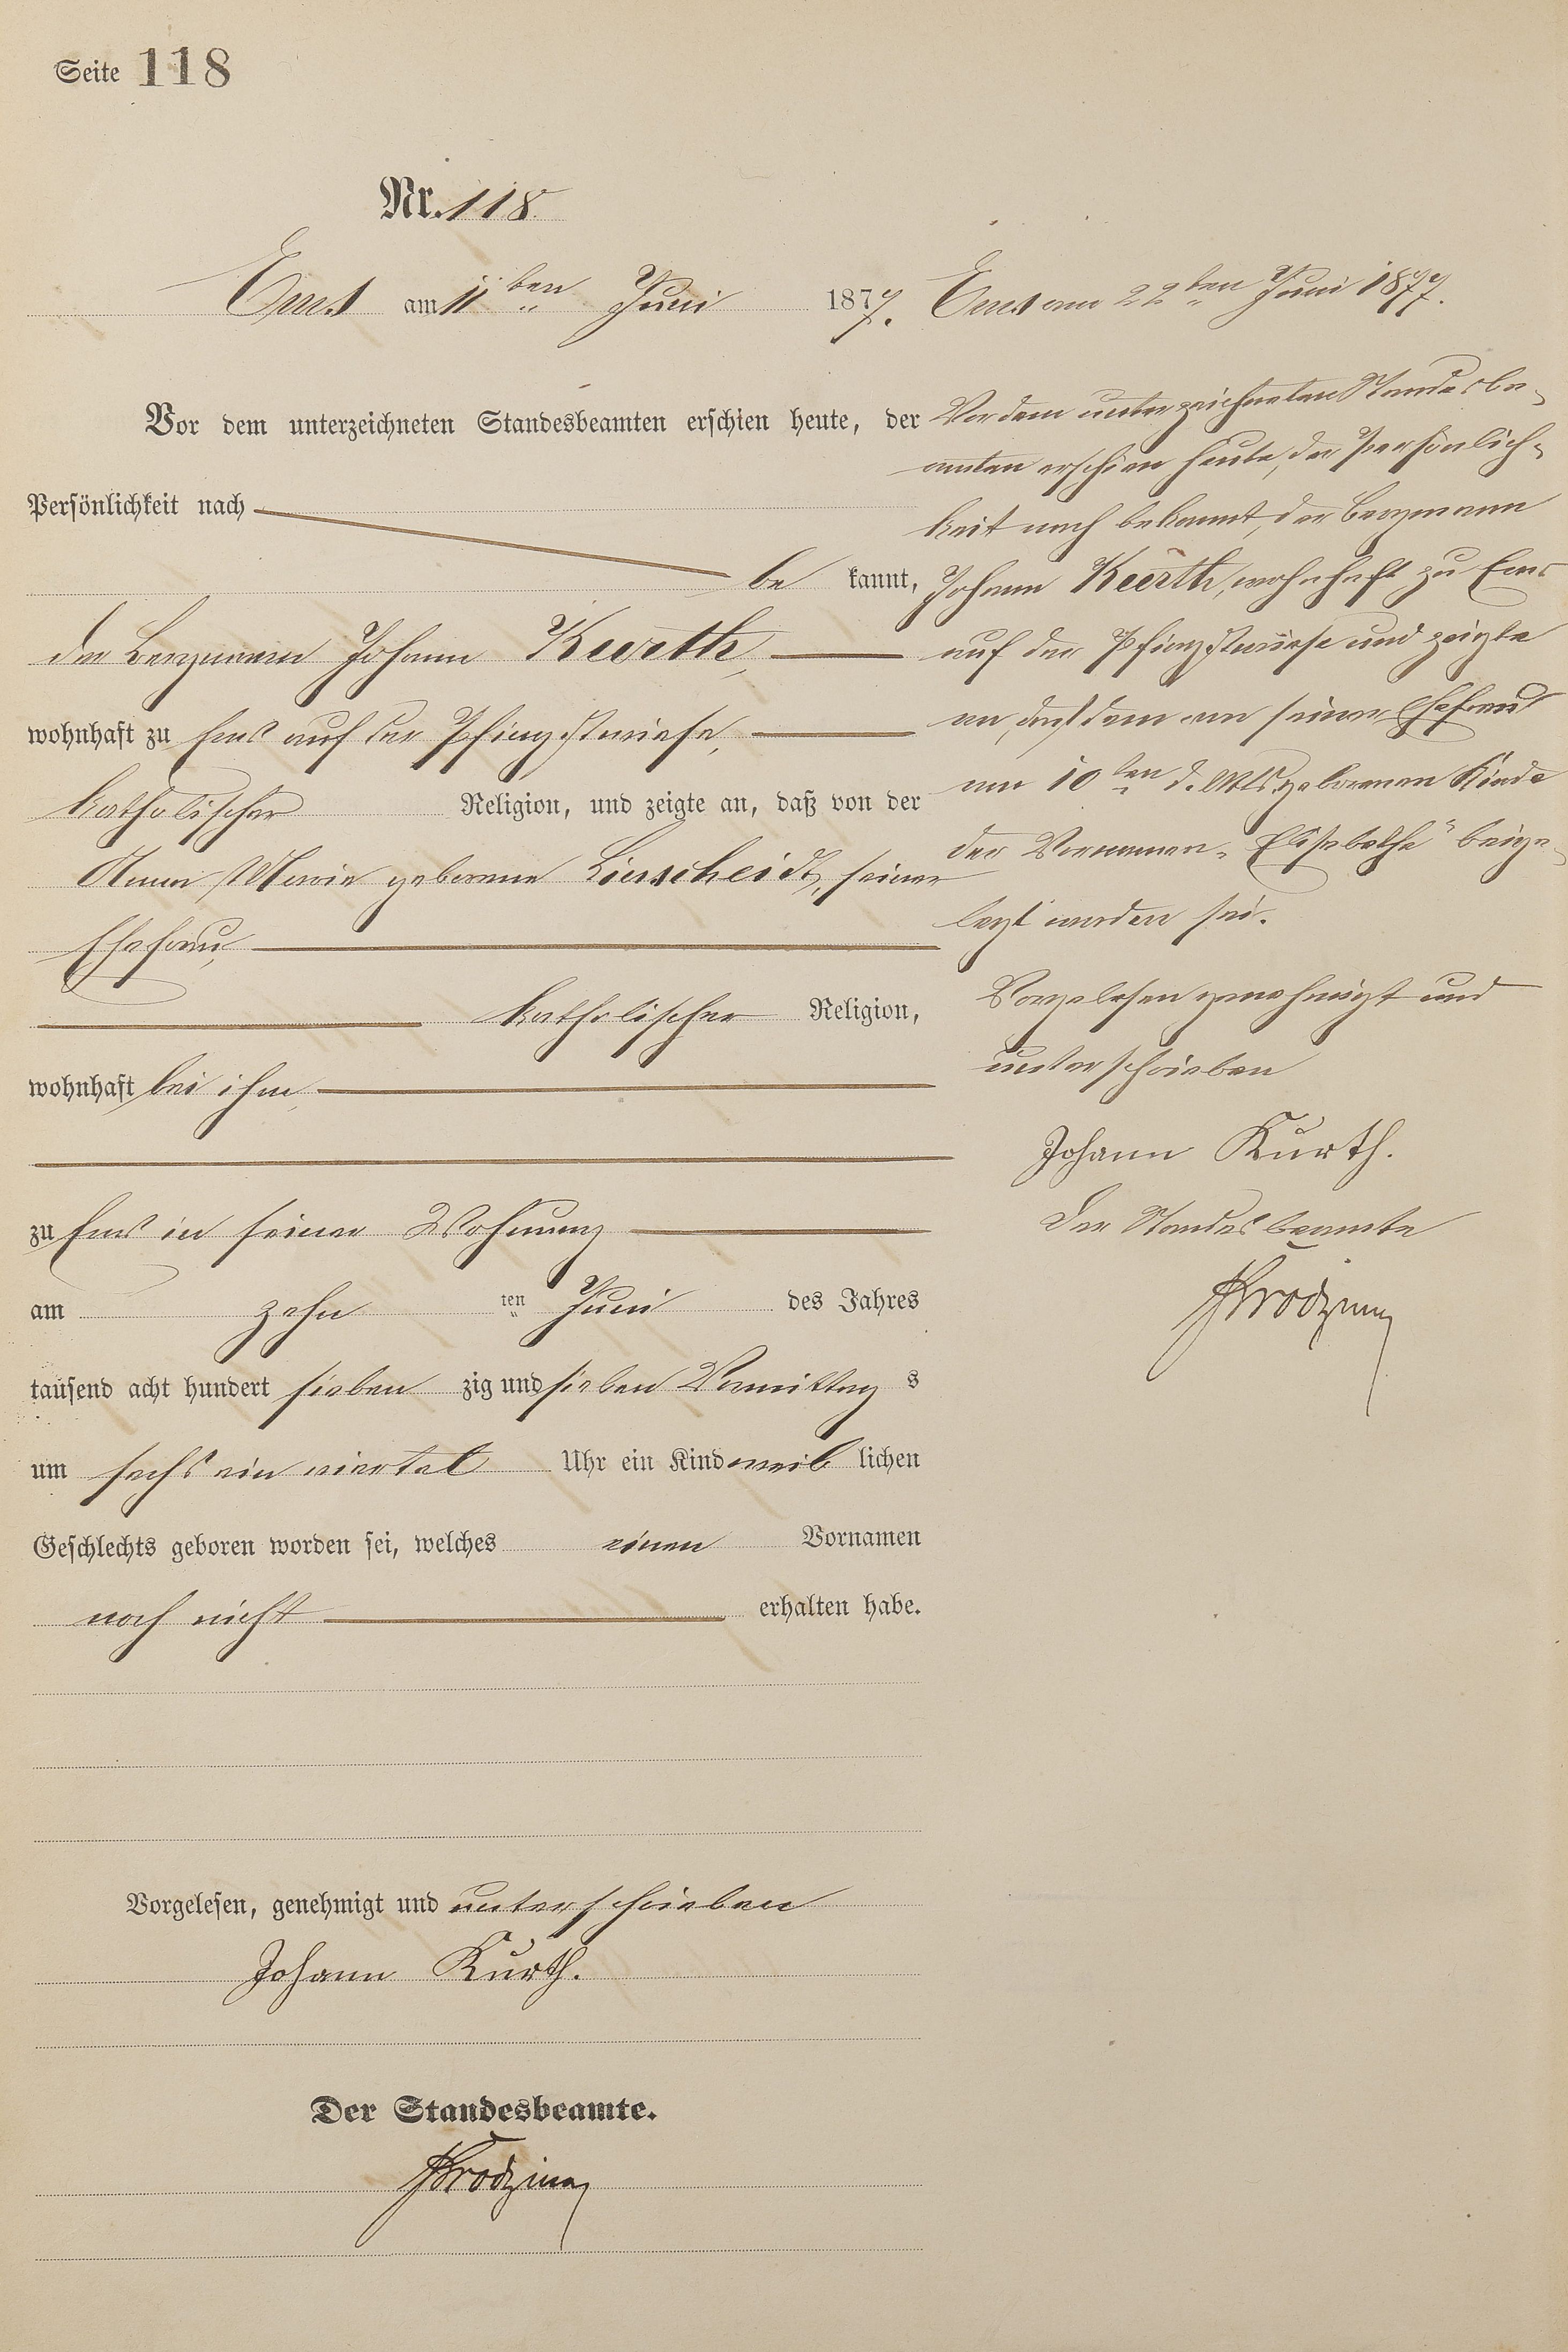 Seite 118
Nr. 118.
Ems am 11ten Juni 1877.
Vor dem unterzeichneten Standesbeamten erschien heute, der
Persönlichkeit nach
be kannt,
der Bergmann Johann Kurth,
wohnhaft zu Ems auf der Pfingstwiese,
katholischer Religion, und zeigte an, daß von der
Anna Maria geborene Linscheidt, seiner
Ehefrau,
katholischer Religion,
wohnhaft bei ihm,
zu Ems in seiner Wohnung
am zehn ten Juni des Jahres
tausend acht hundert sieben zig und sieben Vormittag s
um sechs ein viertel Uhr ein Kind weib lichen
Geschlechts geboren worden sei, welches einen Vornamen
noch nicht erhalten habe.
Vorgelesen, genehmigt und unterschrieben
Johann Kurth.
Der Standesbeamte.
Ems am 22ten Juni 1877.
Vor dem unterzeichneten Standesbe-
amten erschien heute, der Persönlich-
keit nach bekannt, der Bergmann
Johann Kurth, wohnhaft zu Ems
auf der Pfingstwiese und zeigte
an, daß dem von seiner Ehefrau
am 10ten d. Mts geborenen Kinde
der Vornamen „Elisabethe" beige-
legt worden sei.
Vorgelesen genehmigt und
unterschrieben
Johann Kurth.
Der Standesbeamte